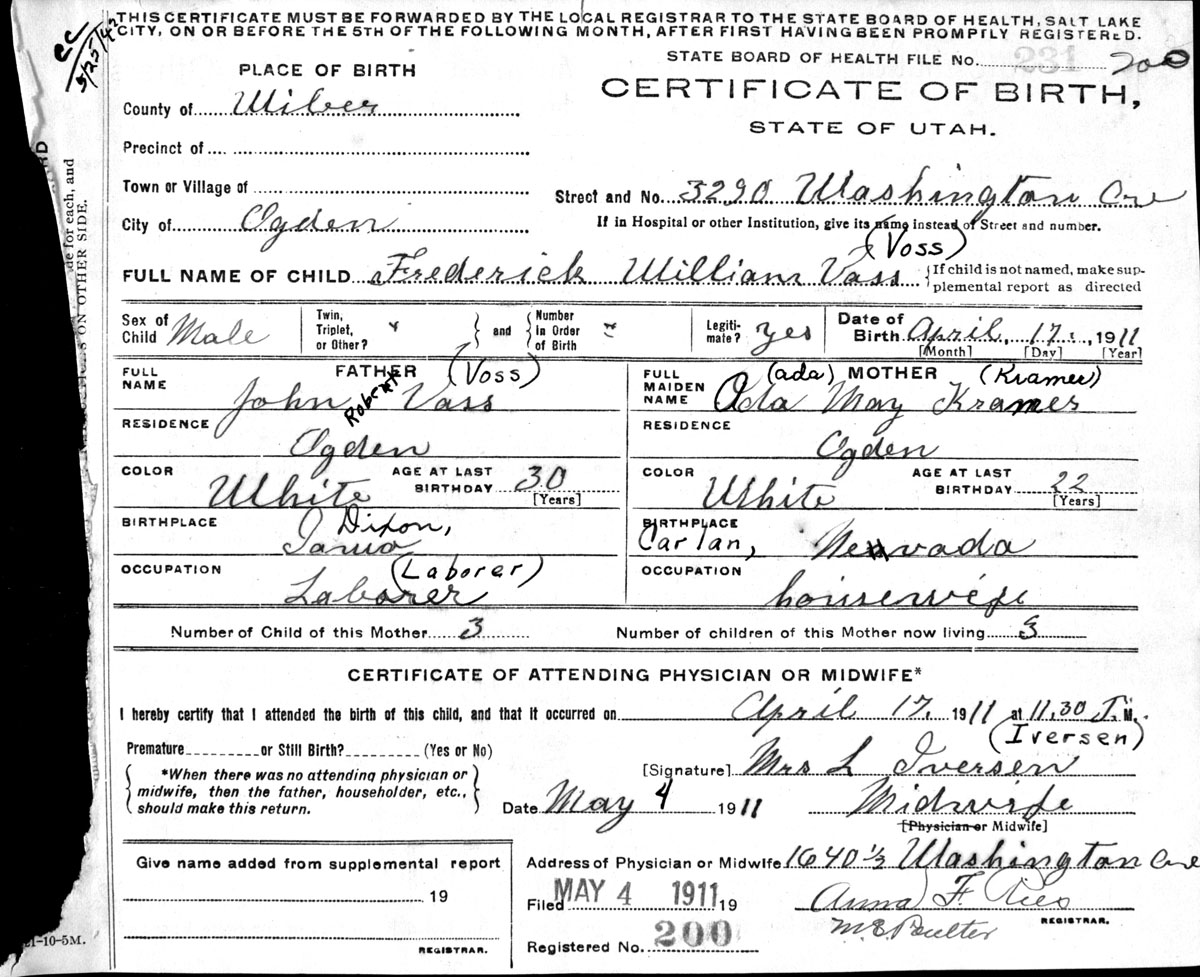 THIS CERTIFICATE MUST BE FORWARDED BY THE LOCAL REGISTRAR TO THE STATE BOARD OF HEALTH, SALT LAKE
CITY, ON OR BEFORE THE 5TH OF THE FOLLOWING MONTH, AFTER FIRST HAVING BEEN PROMPTLY REGISTERED.
cc
3/25/42
STATE BOARD OF HEALTH FILE No. 231 200
PLACE OF BIRTH
CERTIFICATE OF BIRTH,
STATE OF UTAH.
County of Wiber
Precinct of
Town or Village of
Street and No. 3290 Washington Ave
City of Ogden
If in Hospital or other Institution, give its name instead of Street and number.
(Voss)
FULL NAME OF CHILD Frederick William Vass {If child is not named, make sup-
plemental report as directed
de for each, and
S ON OTHER SIDE.
Sex of Child Male
Twin, Triplet, or Other? } and { Number in Order of Birth
Legiti- mate? yes
Date of Birth April, 17, 1911
[Month] [Day] [Year]
FULL NAME FATHER (Voss)
John Robert Vass
RESIDENCE
Ogden
COLOR White AGE AT LAST BIRTHDAY 30 [Years]
BIRTHPLACE Dixon,
Iowa
OCCUPATION (Laborer)
Laborer
FULL MAIDEN NAME (Ada) MOTHER (Kramer)
Ada May Kramer
RESIDENCE
Ogden
COLOR White AGE AT LAST BIRTHDAY 22 [Years]
BIRTHPLACE
Carlan, Nevada
OCCUPATION
housewife
Number of Child of this Mother 3 Number of children of this Mother now living 3
CERTIFICATE OF ATTENDING PHYSICIAN OR MIDWIFE*
I hereby certify that I attended the birth of this child, and that it occurred on April 17, 1911 at 11,30 P.M.
(Iversen)
Premature or Still Birth? (Yes or No)
[Signature] Mrs L Iversen
{ *When there was no attending physician or
midwife, then the father, householder, etc.,
should make this return. }
Date May 4 1911 Midwife
[Physician or Midwife]
Give name added from supplemental report
19
REGISTRAR.
Address of Physician or Midwife 1640 1/2 Washington Ave
Filed MAY 4 1911 19 Anna F. Ries
REGISTRAR.
Registered No. 200
21-10-5M.